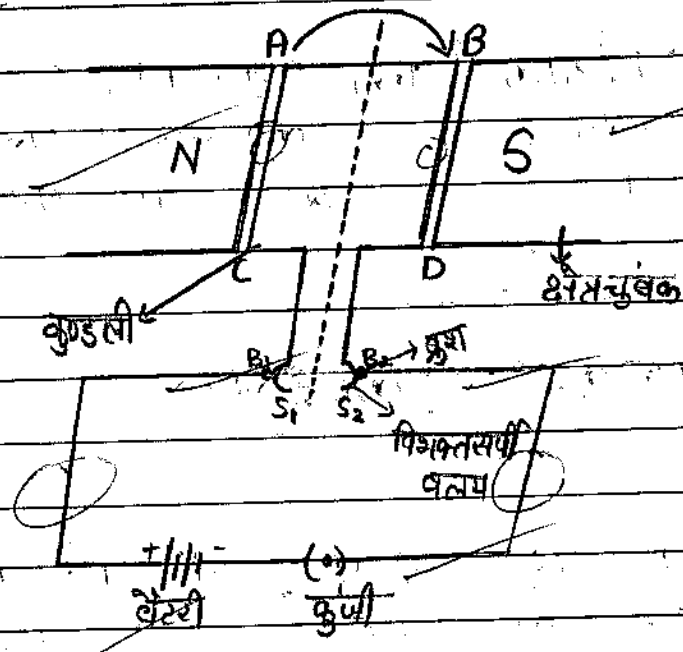 A B
N S
C D
कुण्डली
क्षेत्र चुंबक
B1 B2 ब्रुश
S1 S2
विभक्त सर्पी
वलय
+ -
बैटरी (•) कुंजी